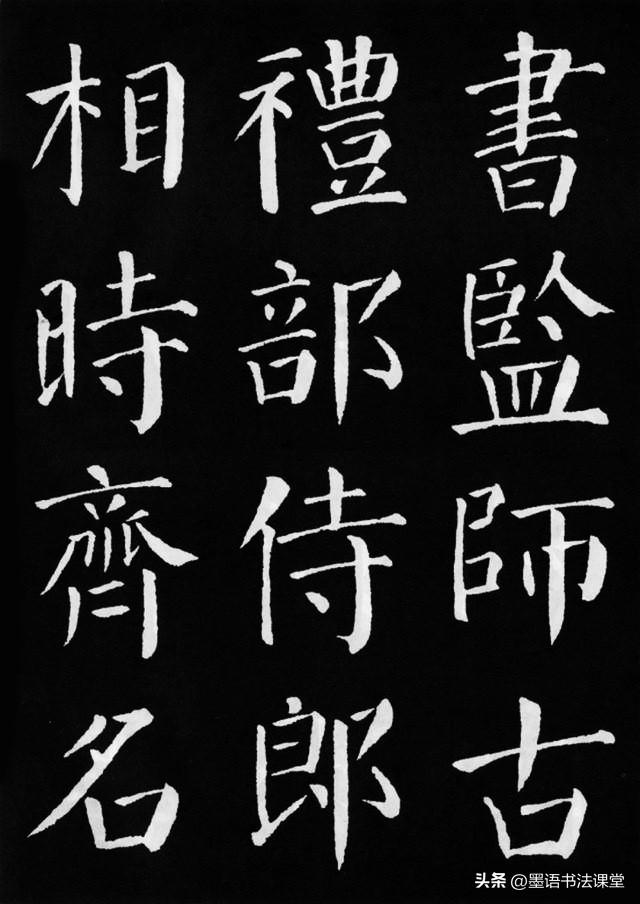 書監師古
禮部侍郎
相時齊名
头条 @墨语书法课堂